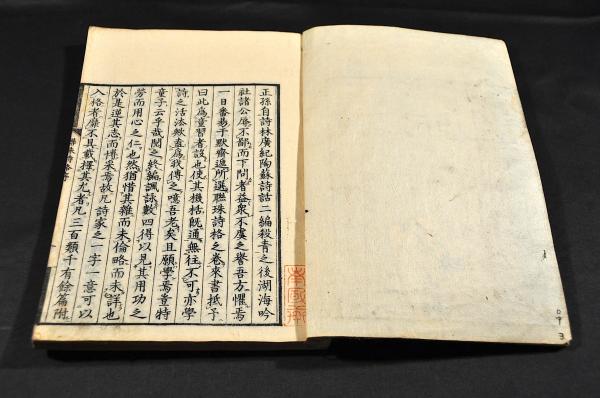 正孫自詩林廣紀陶蘇詩話二編殺青之後湖海吟
社諸公辱不鄙而下問者益衆不虞之譽吾方懼焉
一日番昜于默齋逓所選聯珠詩格之卷來書抵予
曰此爲童習者設也使其機栝既通無往不可亦學
詩之活法歟盍爲我傳之噫吾老矣且願學焉童特
童子云乎哉閱之終編諷詠數四得以見其用功之
勞而用心之仁也然猶惜其雜而未倫略而未詳也
於是逆其志而博采焉故凡詩家之一字一意可以
入格者靡不具載擇其尤者凡三百類千有餘篇附